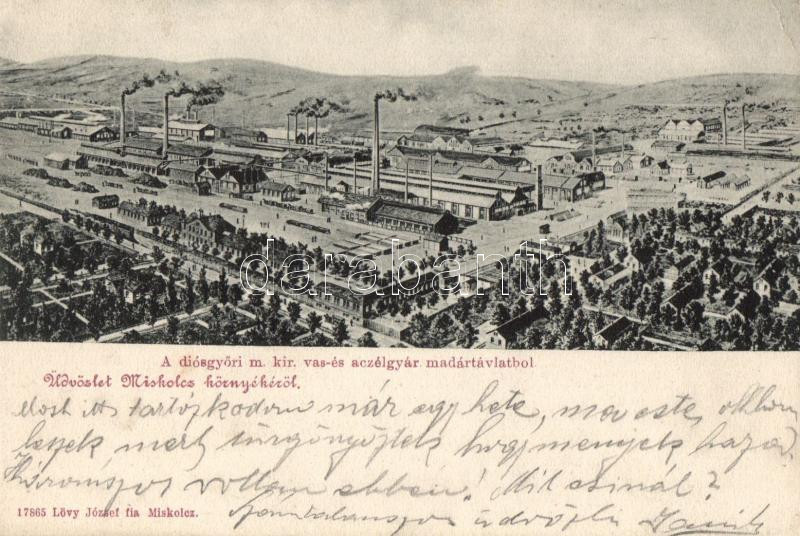 darabanth
A diósgyőri m. kir. vas-és aczélgyár madártávlatbol
Üdvözlet Miskolcz környékéről.
most itt tartózkodom már egy hete, ma este, otthon
leszek mert sürgönyöztek hogy menjek haza.
Háromszor voltam ebben! Mit csinál?
17865 Lövy József fia Miskolcz.
Számtalanszor üdvözli